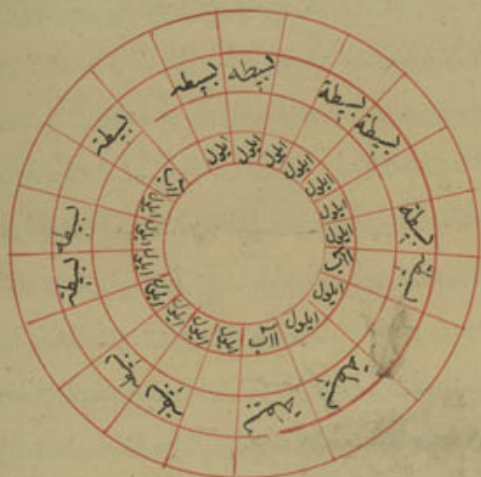 بسيطه
بسيطة
بسيطة
بسيطة
بسيطة
بسيطة
بسيطة
بسيطة
بسيطه
بسيطة
بسيطه
بسيطة
بسيطه
ايلول
ايلول
ايلول
ايلول
ايلول
ايلول
ايلول
ايلول
اآب
ايلول
ايلول
ايلول
ايلول
ايلول
ايلول
ايلول
اآب
ايلول